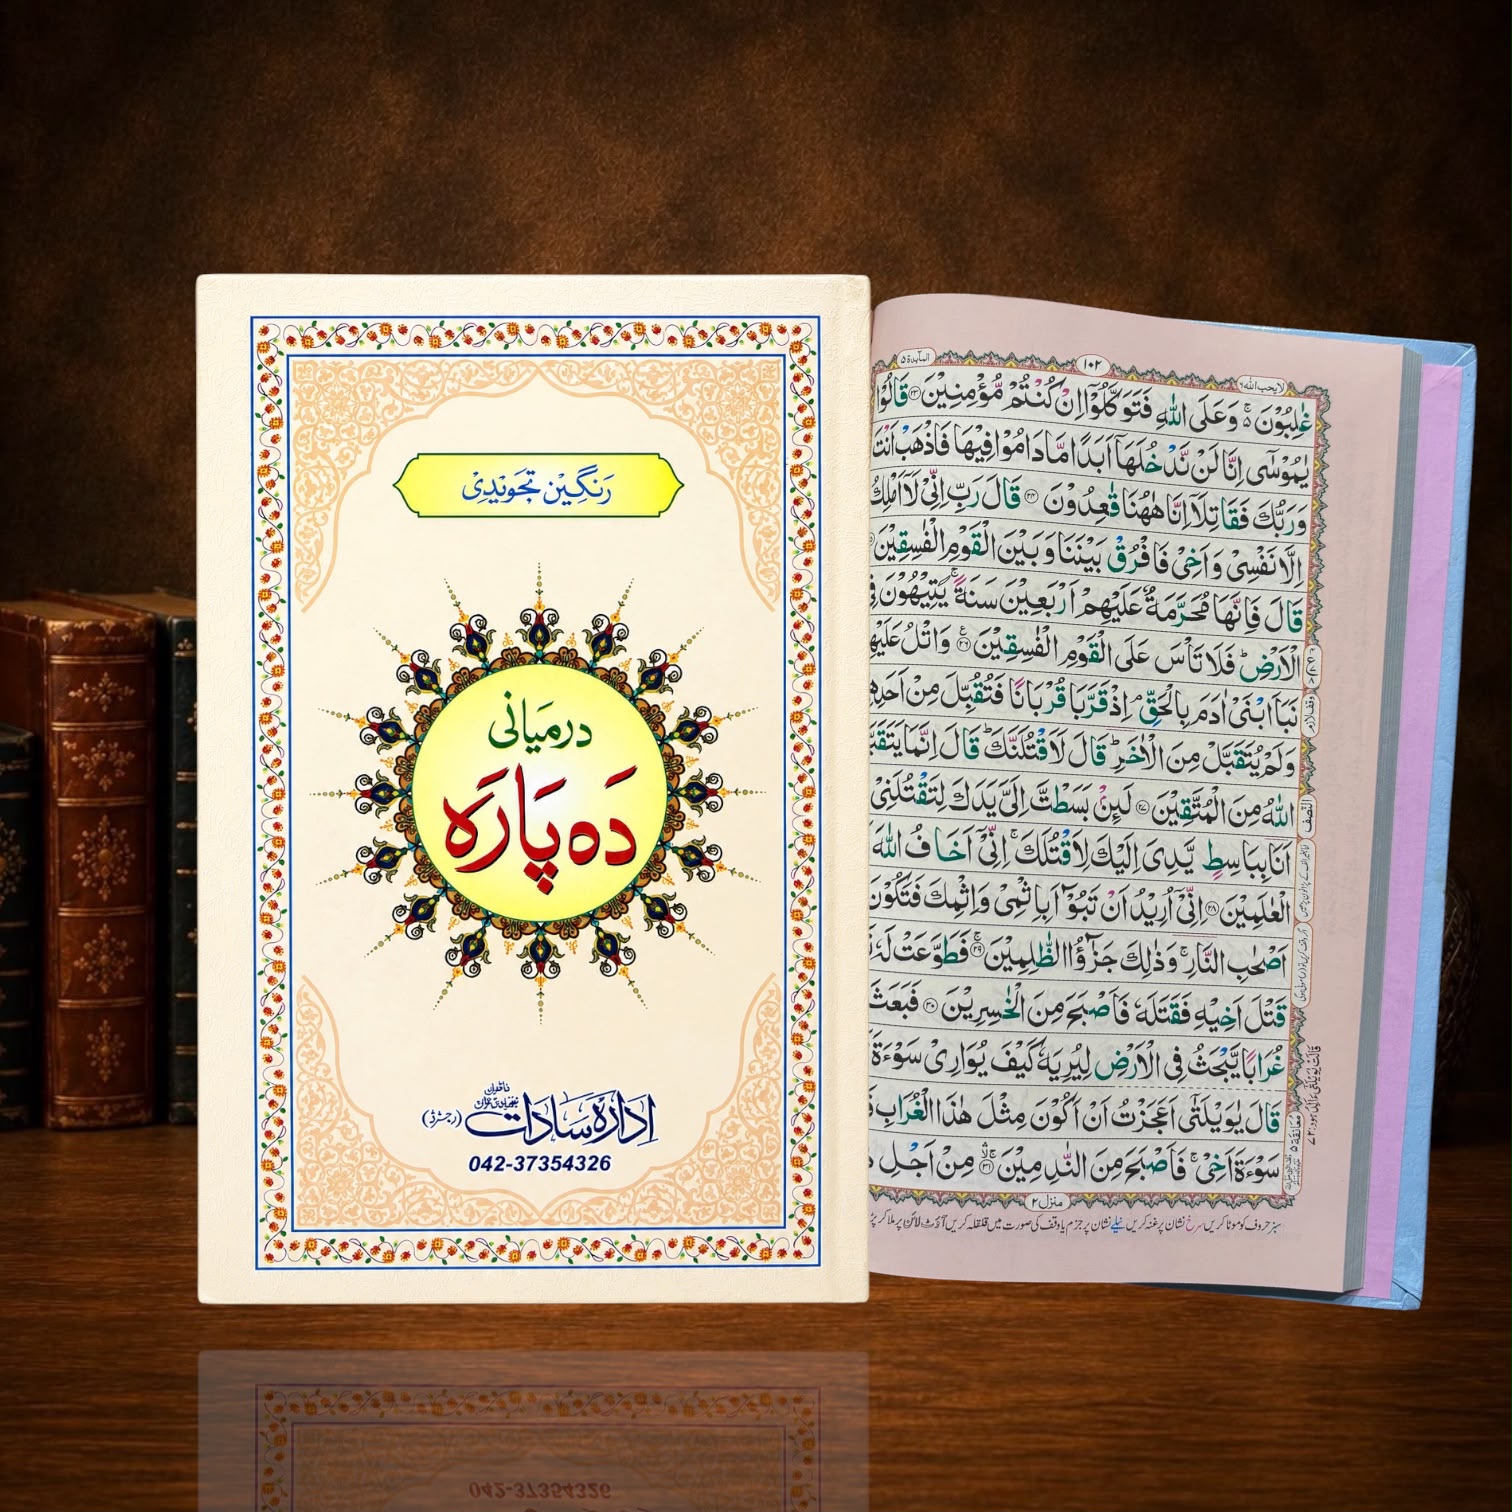 رنگین تجویدی
درمیانی
دہ پارہ
ادارہ سادات (رجسٹرڈ)
042-37354326
لا یحب اللہ ٦
١٠٢
المآئدۃ ٥
غٰلِبُوْنَ ۵ وَعَلَى اللّٰهِ فَتَوَكَّلُوْۤا اِنْ كُنْتُمْ مُّؤْمِنِیْنَ ﴿۲۳﴾ قَالُوْا
یٰمُوْسٰۤى اِنَّا لَنْ نَّدْخُلَهَاۤ اَبَدًا مَّا دَامُوْا فِیْهَا فَاذْهَبْ اَنْتَ
وَرَبُّكَ فَقَاتِلَاۤ اِنَّا هٰهُنَا قٰعِدُوْنَ ﴿۲۴﴾ قَالَ رَبِّ اِنِّیْ لَاۤ اَمْلِكُ
اِلَّا نَفْسِیْ وَاَخِیْ فَافْرُقْ بَیْنَنَا وَبَیْنَ الْقَوْمِ الْفٰسِقِیْنَ
قَالَ فَاِنَّهَا مُحَرَّمَةٌ عَلَیْهِمْ اَرْبَعِیْنَ سَنَةً ۚ یَتِیْهُوْنَ فِی
الْاَرْضِ ؕ فَلَا تَاْسَ عَلَى الْقَوْمِ الْفٰسِقِیْنَ ﴿۲۶﴾ وَاتْلُ عَلَیْهِمْ
نَبَاَ ابْنَیْ اٰدَمَ بِالْحَقِّ ۘ اِذْ قَرَّبَا قُرْبَانًا فَتُقُبِّلَ مِنْ اَحَدِهِ
وَلَمْ یُتَقَبَّلْ مِنَ الْاٰخَرِ ؕ قَالَ لَاَقْتُلَنَّكَ ؕ قَالَ اِنَّمَا یَتَقَبَّ
اللّٰهُ مِنَ الْمُتَّقِیْنَ ﴿۲۷﴾ لَىِٕنْۢ بَسَطْتَّ اِلَیَّ یَدَكَ لِتَقْتُلَنِیْ
اَنَا بِبَاسِطٍ یَّدِیَ اِلَیْكَ لِاَقْتُلَكَ ۚ اِنِّیْۤ اَخَافُ اللّٰهَ
الْعٰلَمِیْنَ ﴿۲۸﴾ اِنِّیْۤ اُرِیْدُ اَنْ تَبُوْٓاَ بِاِثْمِیْ وَاِثْمِكَ فَتَكُوْنَ
اَصْحٰبِ النَّارِ ۚ وَذٰلِكَ جَزٰٓؤُا الظّٰلِمِیْنَ ﴿۲۹﴾ فَطَوَّعَتْ لَهٗ
قَتْلَ اَخِیْهِ فَقَتَلَهٗ فَاَصْبَحَ مِنَ الْخٰسِرِیْنَ ﴿۳۰﴾ فَبَعَثَ
غُرَابًا یَّبْحَثُ فِی الْاَرْضِ لِیُرِیَهٗ كَیْفَ یُوَارِیْ سَوْءَةَ
قَالَ یٰوَیْلَتٰۤى اَعَجَزْتُ اَنْ اَكُوْنَ مِثْلَ هٰذَا الْغُرَابِ فَ
سَوْءَةَ اَخِیْ ۚ فَاَصْبَحَ مِنَ النّٰدِمِیْنَ ﴿۳۱﴾ مِنْ اَجْلِ
وقف لازم
النصف
معانقۃ ٥
منزل ٢
سبز حروف کو موٹا کریں سرخ نشان پر غنہ کریں نیلے نشان پر جزم یا وقف کی صورت میں قلقلہ کریں آؤٹ لائن پر ملا کر پڑ